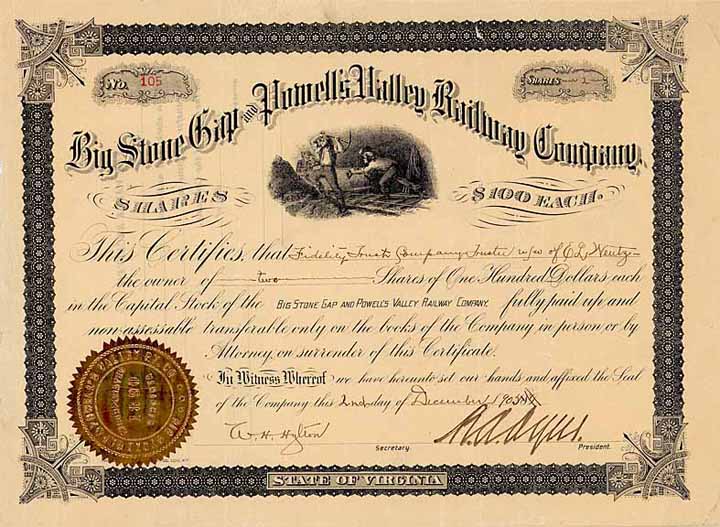 No. 105
SHARES 2
Big Stone Gap and Powell's Valley Railway Company.
SHARES $100 EACH.
This Certifies, that Fidelity Trust Company Trustee u/w of E. L. Wentz
the owner of two Shares of One Hundred Dollars each
in the Capital Stock of the BIG STONE GAP AND POWELL'S VALLEY RAILWAY COMPANY. fully paid up and
non-assessable transferable only on the books of the Company in person or by
Attorney, on surrender of this Certificate.
In Witness Whereof we have hereunto set our hands and affixed the Seal
of the Company this 2nd day of December 1903
W. H. Hylton
Secretary. President.
STATE OF VIRGINIA